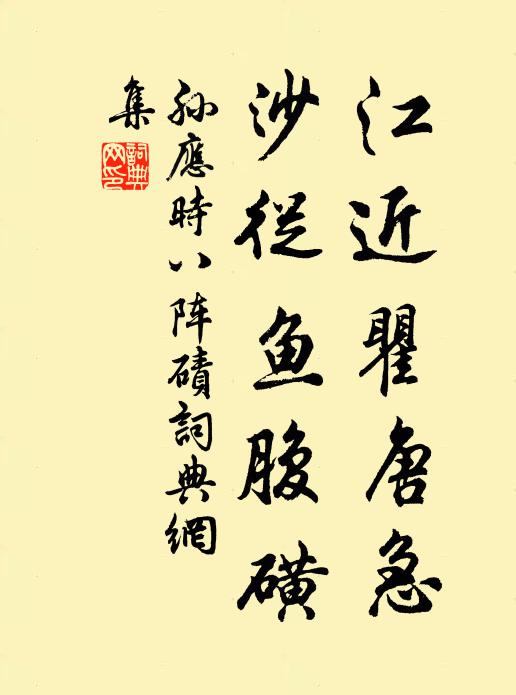 江近瞿唐急
沙從鱼腹磺
孙應時八阵磧詞典網
集
詞典網印